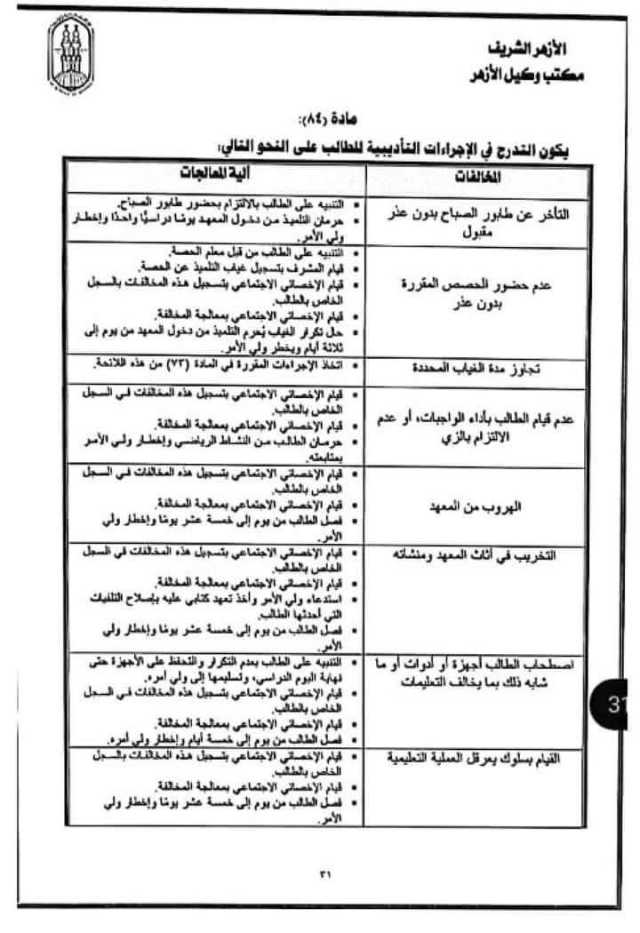 الأزهر الشريف
مكتب وكيل الأزهر
مادة (٨٤):
يكون التدرج في الإجراءات التأديبية للطالب على النحو التالي:
المخالفات
ألية المعالجات
التأخر عن طابور الصباح بدون عذر
مقبول
▪ التنبيه على الطالب بالالتزام بحضور طابور الصباح.
▪ حرمان التلميذ من دخول المعهد يومًا دراسيًا واحدًا وإخطار
ولي الأمر.
عدم حضور الحصص المقررة
بدون عذر
▪ التنبيه على الطالب من قبل معلم الحصة.
▪ قيام المشرف بتسجيل غياب التلميذ عن الحصة.
▪ قيام الإخصائي الاجتماعي بتسجيل هذه المخالفات بالسجل
الخاص بالطالب.
▪ قيام الإخصائي الاجتماعي بمعالجة المخالفة.
▪ حال تكرار الغياب يُحرم التلميذ من دخول المعهد من يوم إلى
ثلاثة أيام ويخطر ولي الأمر.
تجاوز مدة الغياب المحددة
▪ اتخاذ الإجراءات المقررة في المادة (٧٣) من هذه اللائحة.
عدم قيام الطالب بأداء الواجبات، أو عدم
الالتزام بالزي
▪ قيام الإخصائي الاجتماعي بتسجيل هذه المخالفات في السجل
الخاص بالطالب.
▪ قيام الإخصائي الاجتماعي بمعالجة المخالفة.
▪ حرمان الطالب من النشاط الرياضي وإخطار ولي الأمر
بمتابعته.
الهروب من المعهد
▪ قيام الإخصائي الاجتماعي بتسجيل هذه المخالفات في السجل
الخاص بالطالب.
▪ قيام الإخصائي الاجتماعي بمعالجة المخالفة.
▪ فصل الطالب من يوم إلى خمسة عشر يومًا وإخطار ولي
الأمر.
التخريب في أثاث المعهد ومنشأته
▪ قيام الإخصائي الاجتماعي بتسجيل هذه المخالفات في السجل
الخاص بالطالب.
▪ قيام الإخصائي الاجتماعي بمعالجة المخالفة.
▪ استدعاء ولي الأمر وأخذ تعهد كتابي عليه بإصلاح التلفيات
التي أحدثها الطالب.
▪ فصل الطالب من يوم إلى خمسة عشر يومًا وإخطار ولي
الأمر.
اصطحاب الطالب أجهزة أو أدوات أو ما
شابه ذلك بما يخالف التعليمات
▪ التنبيه على الطالب بعدم التكرار والتحفظ على الأجهزة حتى
نهاية اليوم الدراسي، وتسليمها إلى ولي أمره.
▪ قيام الإخصائي الاجتماعي بتسجيل هذه المخالفات في السجل
الخاص بالطالب.
▪ قيام الإخصائي الاجتماعي بمعالجة المخالفة.
▪ فصل الطالب من يوم إلى خمسة أيام وإخطار ولي أمره.
القيام بسلوك يعرقل العملية التعليمية
▪ قيام الإخصائي الاجتماعي بتسجيل هذه المخالفات بالسجل
الخاص بالطالب.
▪ قيام الإخصائي الاجتماعي بمعالجة المخالفة.
▪ فصل الطالب من يوم إلى خمسة عشر يومًا وإخطار ولي
الأمر.
31
٣١